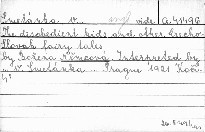 Smetánka, V. angl vide A.41496
The disobedient kids and other Czecho-
Slovak fairy tales
by Božena Němcová. Interpreted by
V. Smetánka... Prague 1921 Koči